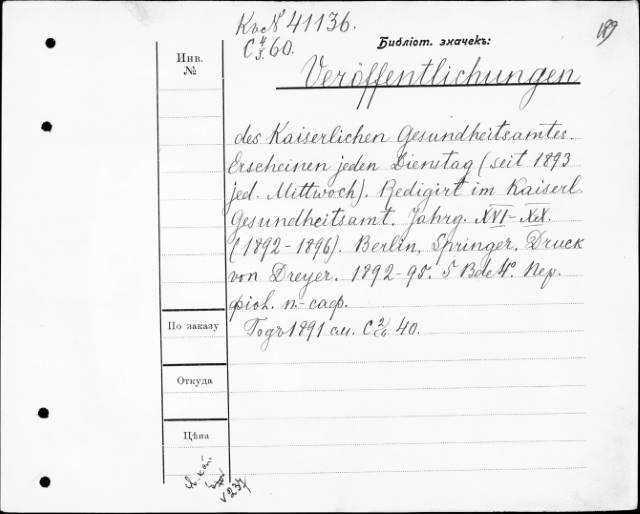 Кв№ 41136.
189
C 4/3.60.
Библіот. значекъ:
Инв.
№
Veröffentlichungen
des Kaiserlichen Gesundheitsamtes.
Erscheinen jeden Dienstag (seit 1893
jed. Mittwoch). Redigirt im Kaiserl.
Gesundheitsamt. Jahrg. XVI-XIX.
(1892-1896). Berlin, Springer. Druck
von Dreyer. 1892-95. 5 Bde 4º. Пер.
фіол. п.-саф.
Годъ 1891 см. C 40.
По заказу
Откуда
Цѣна
v 237